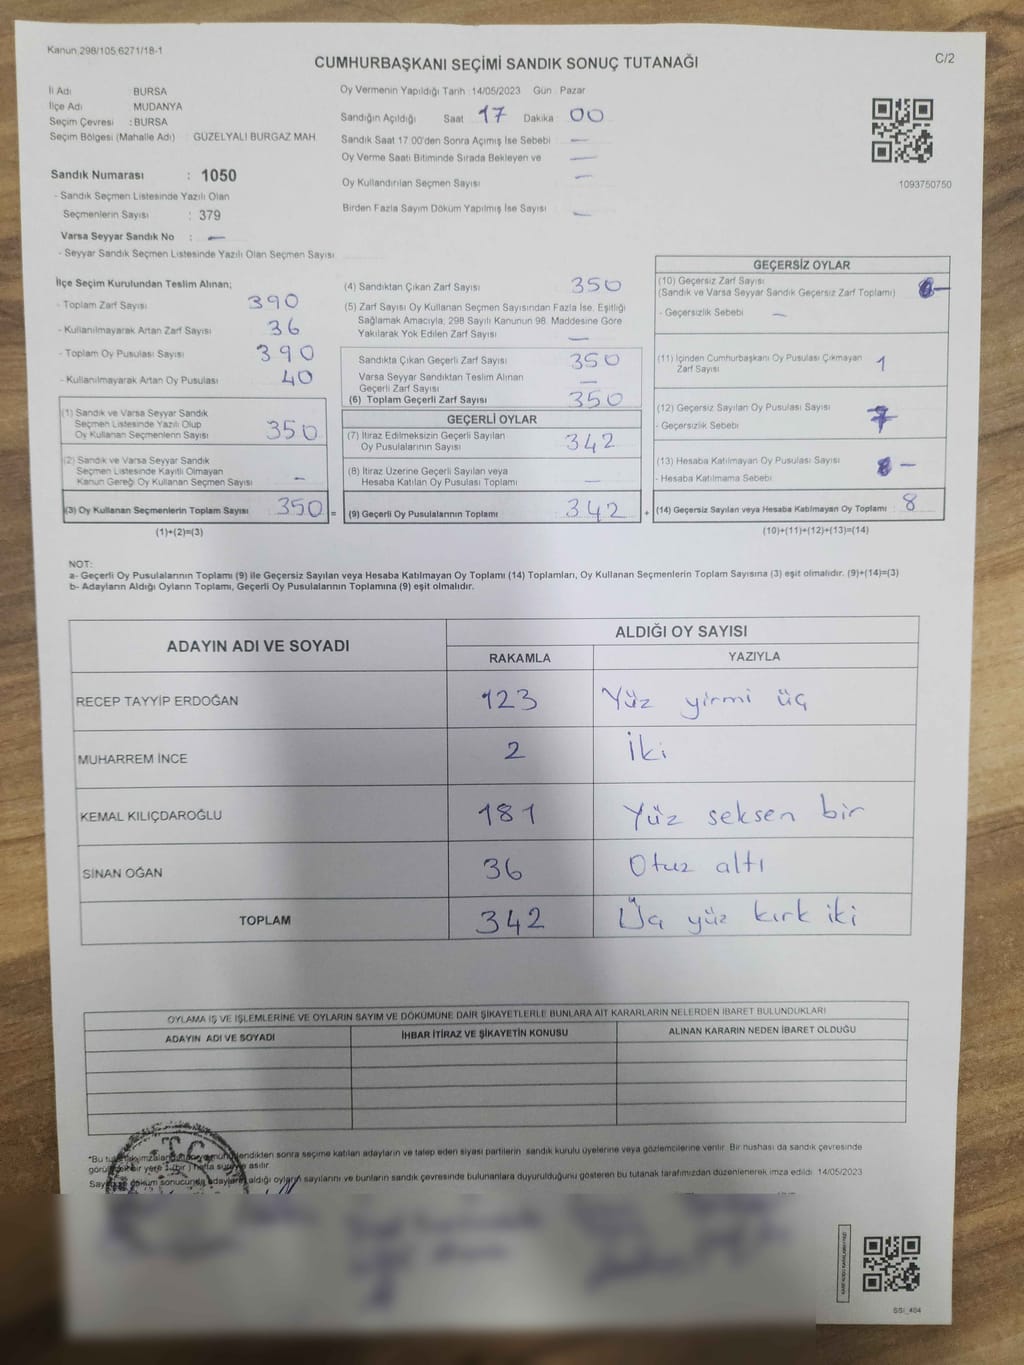 Kanun 298/105,6271/18-1
C/2
CUMHURBAŞKANI SEÇİMİ SANDIK SONUÇ TUTANAĞI
İl Adı BURSA
İlçe Adı MUDANYA
Seçim Çevresi : BURSA
Seçim Bölgesi (Mahalle Adı) GÜZELYALI BURGAZ MAH.
Sandık Numarası : 1050
- Sandık Seçmen Listesinde Yazılı Olan
Seçmenlerin Sayısı : 379
Varsa Seyyar Sandık No : —
- Seyyar Sandık Seçmen Listesinde Yazılı Olan Seçmen Sayısı
Oy Vermenin Yapıldığı Tarih 14/05/2023 Gün : Pazar
Sandığın Açıldığı Saat 17 Dakika 00
Sandık Saat 17:00'den Sonra Açımış İse Sebebi —
Oy Verme Saati Bitiminde Sırada Bekleyen ve —
Oy Kullandırılan Seçmen Sayısı —
Birden Fazla Sayım Döküm Yapılmış İse Sayısı —
1093750750
İlçe Seçim Kurulundan Teslim Alınan;
- Toplam Zarf Sayısı 390
- Kullanılmayarak Artan Zarf Sayısı 36
- Toplam Oy Pusulası Sayısı 390
- Kullanılmayarak Artan Oy Pusulası 40
(1) Sandık ve Varsa Seyyar Sandık
Seçmen Listesinde Yazılı Olup
Oy Kullanan Seçmenlerin Sayısı 350
(2) Sandık ve Varsa Seyyar Sandık
Seçmen Listesinde Kayıtlı Olmayan
Kanun Gereği Oy Kullanan Seçmen Sayısı —
(3) Oy Kullanan Seçmenlerin Toplam Sayısı 350 =
(1)+(2)=(3)
(4) Sandıktan Çıkan Zarf Sayısı 350
(5) Zarf Sayısı Oy Kullanan Seçmen Sayısından Fazla İse, Eşitliği
Sağlamak Amacıyla; 298 Sayılı Kanunun 98. Maddesine Göre
Yakılarak Yok Edilen Zarf Sayısı —
Sandıkta Çıkan Geçerli Zarf Sayısı 350
Varsa Seyyar Sandıktan Teslim Alınan
Geçerli Zarf Sayısı —
(6) Toplam Geçerli Zarf Sayısı 350
GEÇERLİ OYLAR
(7) İtiraz Edilmeksizin Geçerli Sayılan
Oy Pusulalarının Sayısı 342
(8) İtiraz Üzerine Geçerli Sayılan veya
Hesaba Katılan Oy Pusulası Toplamı —
(9) Geçerli Oy Pusulalarının Toplamı 342 +
GEÇERSİZ OYLAR
(10) Geçersiz Zarf Sayısı —
(Sandık ve Varsa Seyyar Sandık Geçersiz Zarf Toplamı)
- Geçersizlik Sebebi —
(11) İçinden Cumhurbaşkanı Oy Pusulası Çıkmayan
Zarf Sayısı 1
(12) Geçersiz Sayılan Oy Pusulası Sayısı 7
- Geçersizlik Sebebi
(13) Hesaba Katılmayan Oy Pusulası Sayısı —
- Hesaba Katılmama Sebebi
(14) Geçersiz Sayılan veya Hesaba Katılmayan Oy Toplamı 8
(10)+(11)+(12)+(13)=(14)
NOT:
a- Geçerli Oy Pusulalarının Toplamı (9) ile Geçersiz Sayılan veya Hesaba Katılmayan Oy Toplamı (14) Toplamları, Oy Kullanan Seçmenlerin Toplam Sayısına (3) eşit olmalıdır. (9)+(14)=(3)
b- Adayların Aldığı Oyların Toplamı, Geçerli Oy Pusulalarının Toplamına (9) eşit olmalıdır.
ADAYIN ADI VE SOYADI ALDIĞI OY SAYISI
RAKAMLA YAZIYLA
RECEP TAYYİP ERDOĞAN 123 Yüz yirmi üç
MUHARREM İNCE 2 İki
KEMAL KILIÇDAROĞLU 181 Yüz seksen bir
SİNAN OĞAN 36 Otuz altı
TOPLAM 342 Üç yüz kırk iki
OYLAMA İŞ VE İŞLEMLERİNE VE OYLARIN SAYIM VE DÖKÜMÜNE DAİR ŞİKAYETLERLE BUNLARA AİT KARARLARIN NELERDEN İBARET BULUNDUKLARI
ADAYIN ADI VE SOYADI İHBAR İTİRAZ VE ŞİKAYETİN KONUSU ALINAN KARARIN NEDEN İBARET OLDUĞU
T.C.
sonra seçime katılan adayların ve talep eden siyasi partilerin sandık kurulu üyelerine veya gözlemcilerine verilir. Bir nüshası da sandık çevresinde
bir yere hafta süreyle asılır.
döküm sonucunda adayların aldığı oyların sayılarını ve bunların sandık çevresinde bulunanlara duyurulduğunu gösteren bu tutanak tarafımızdan düzenlenerek imza edildi. 14/05/2023
SSI_404